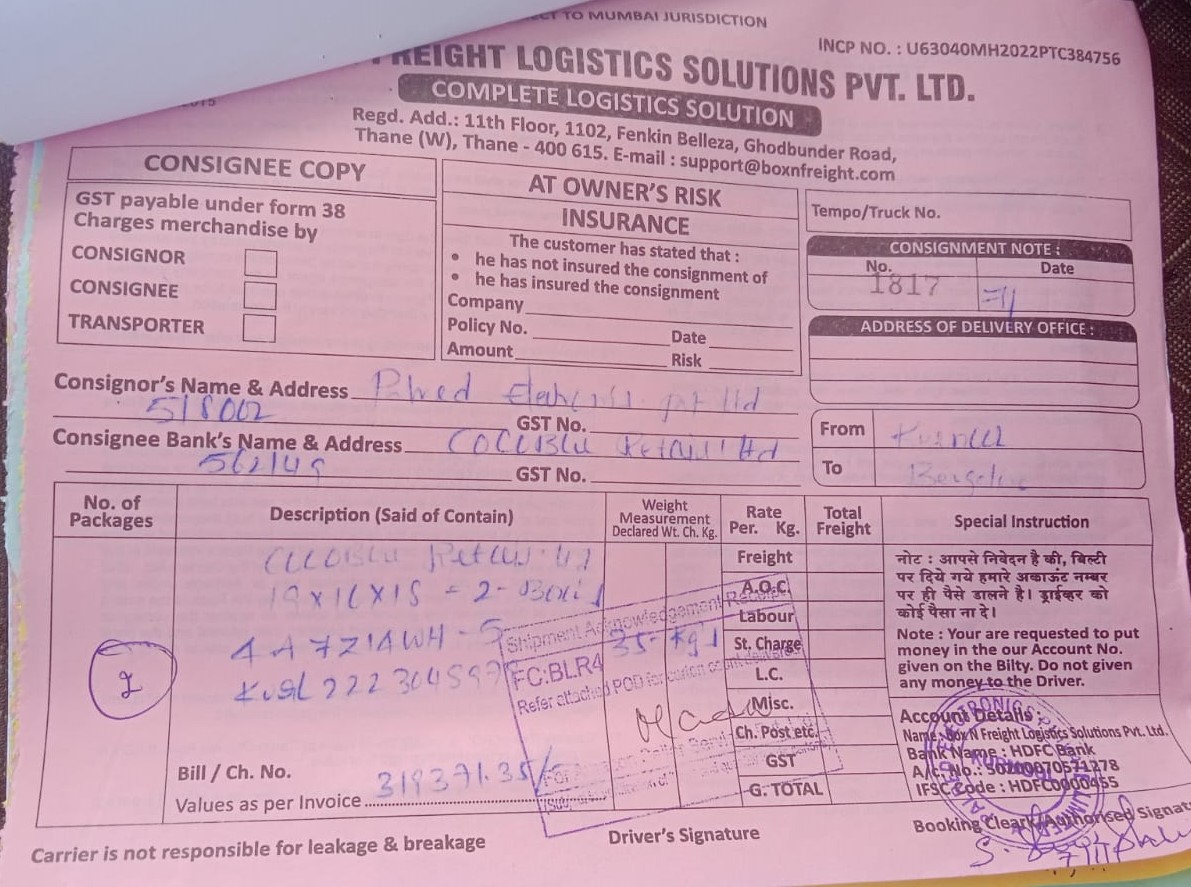 TO MUMBAI JURISDICTION
INCP NO. : U63040MH2022PTC384756
FREIGHT LOGISTICS SOLUTIONS PVT. LTD.
COMPLETE LOGISTICS SOLUTION
Regd. Add.: 11th Floor, 1102, Fenkin Belleza, Ghodbunder Road,
Thane (W), Thane - 400 615. E-mail : support@boxnfreight.com
CONSIGNEE COPY
GST payable under form 38
Charges merchandise by
CONSIGNOR
CONSIGNEE
TRANSPORTER
AT OWNER'S RISK
INSURANCE
The customer has stated that :
• he has not insured the consignment of
• he has insured the consignment
Company
Policy No. Date
Amount Risk
Tempo/Truck No.
CONSIGNMENT NOTE :
No. Date
1817
ADDRESS OF DELIVERY OFFICE :
Consignor's Name & Address pvt ltd
518002 GST No.
Consignee Bank's Name & Address COCOBLU Retail ltd
562149 GST No.
From
To
No. of Packages
Description (Said of Contain)
Weight Measurement Declared Wt. Ch. Kg.
Rate Per. Kg.
Total Freight
Special Instruction
2
19x16x15 = 2-
4A7Z14WH - 5
35-kg
Shipment Acknowledgement Receipt
FC:BLR4
Refer attached POD for carton count delivered
Freight
A.O.C.
Labour
St. Charge
L.C.
Misc.
Ch. Post etc.
GST
G. TOTAL
नोट : आपसे निवेदन है की, बिल्टी
पर दिये गये हमारे अकाऊंट नम्बर
पर ही पैसे डालने है। ड्राईव्हर को
कोई पैसा ना दे।
Note : Your are requested to put
money in the our Account No.
given on the Bilty. Do not given
any money to the Driver.
Account Details :
Name : Box N Freight Logistics Solutions Pvt. Ltd.
Bank Name : HDFC Bank
A/c. No. : 50200070571278
IFSC Code : HDFC0000455
Bill / Ch. No.
Values as per Invoice 319371.35/-
Carrier is not responsible for leakage & breakage
Driver's Signature
Booking Clear/Authorised Signat